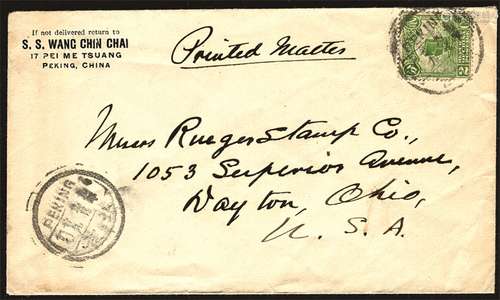 If not delivered return to
S. S. WANG CHIN CHAI
17 PEI ME TSUANG
PEKING, CHINA
Printed Matter
Messrs Rueger Stamp Co.,
1053 Superior Avenue,
Dayton, Ohio,
U. S. A.
PEKING